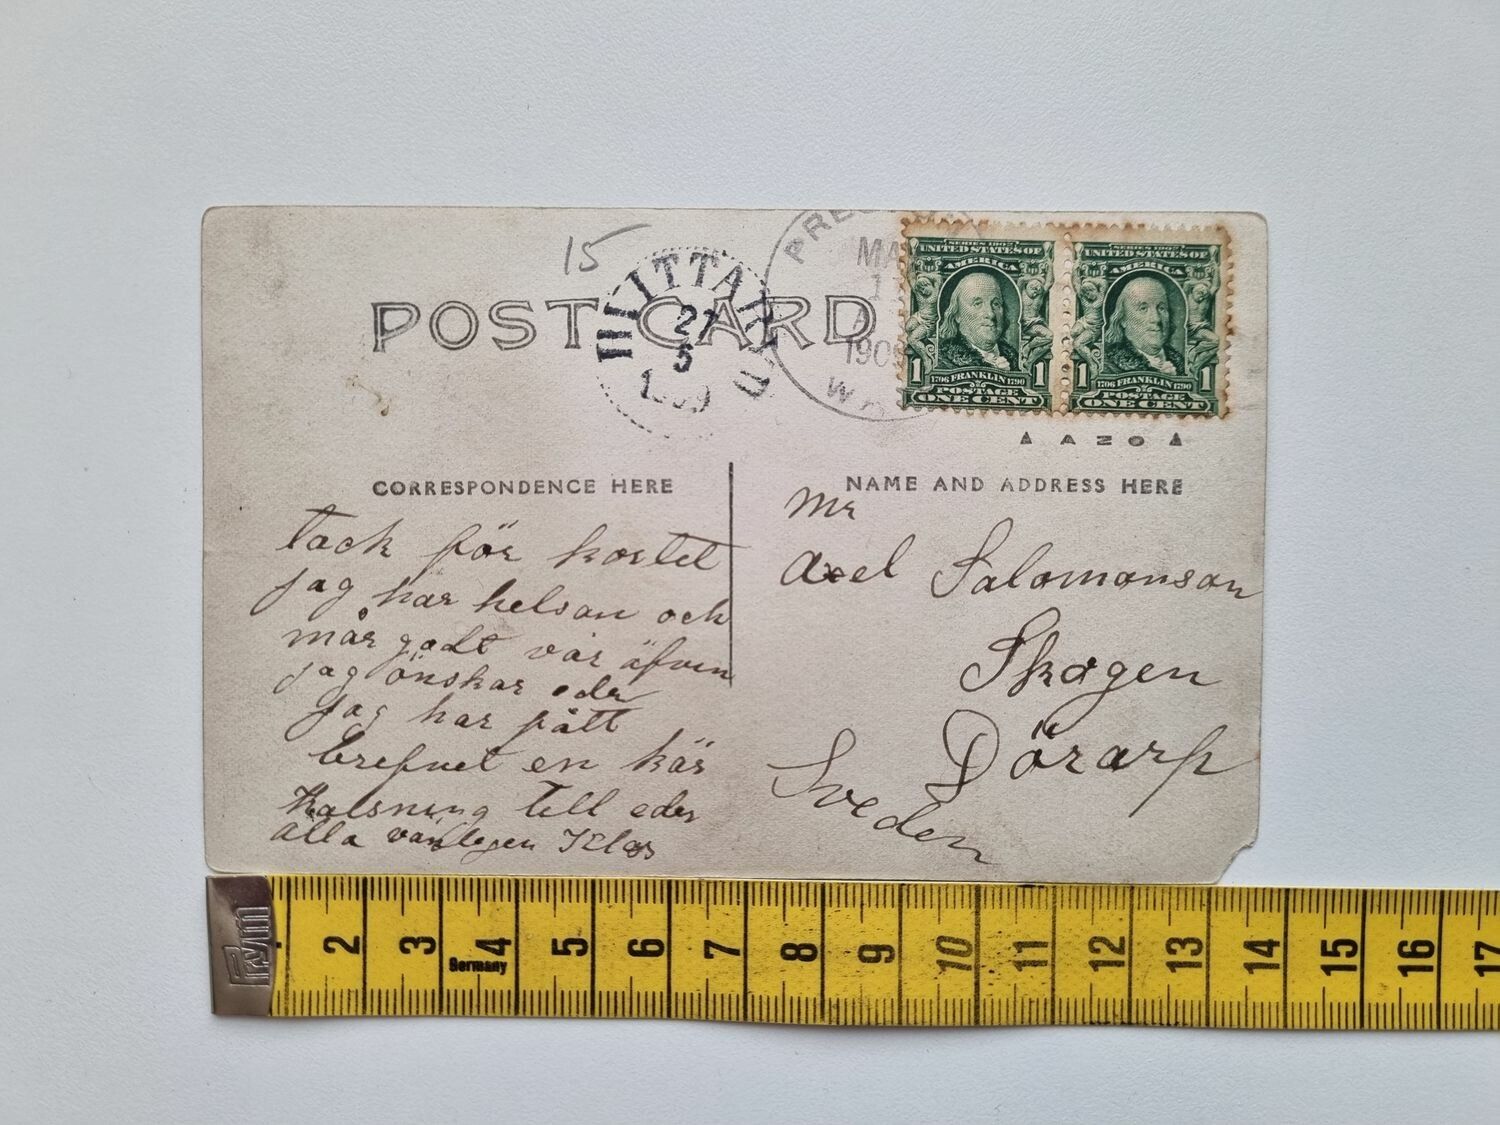 15
LITTARP
27
5
1909
PRE
MA
1
1909
W
SERIES 1902
UNITED STATES OF
AMERICA
1 1706 FRANKLIN 1790 1
POSTAGE
ONE CENT
SERIES 1902
UNITED STATES OF
AMERICA
1 1706 FRANKLIN 1790 1
POSTAGE
ONE CENT
POST CARD
AZO
CORRESPONDENCE HERE
NAME AND ADDRESS HERE
tack för kortet
jag har helsan och
mår godt vår äfven
jag önskar eder
jag har fått
brefvet en kär
Halsning till eder
alla vänlegen Klas
Mr
Axel Salomonson
Skogen
Dörarp
Sveden
Prym
2 3 4 5 6 7 8 9 10 11 12 13 14 15 16 17
Germany